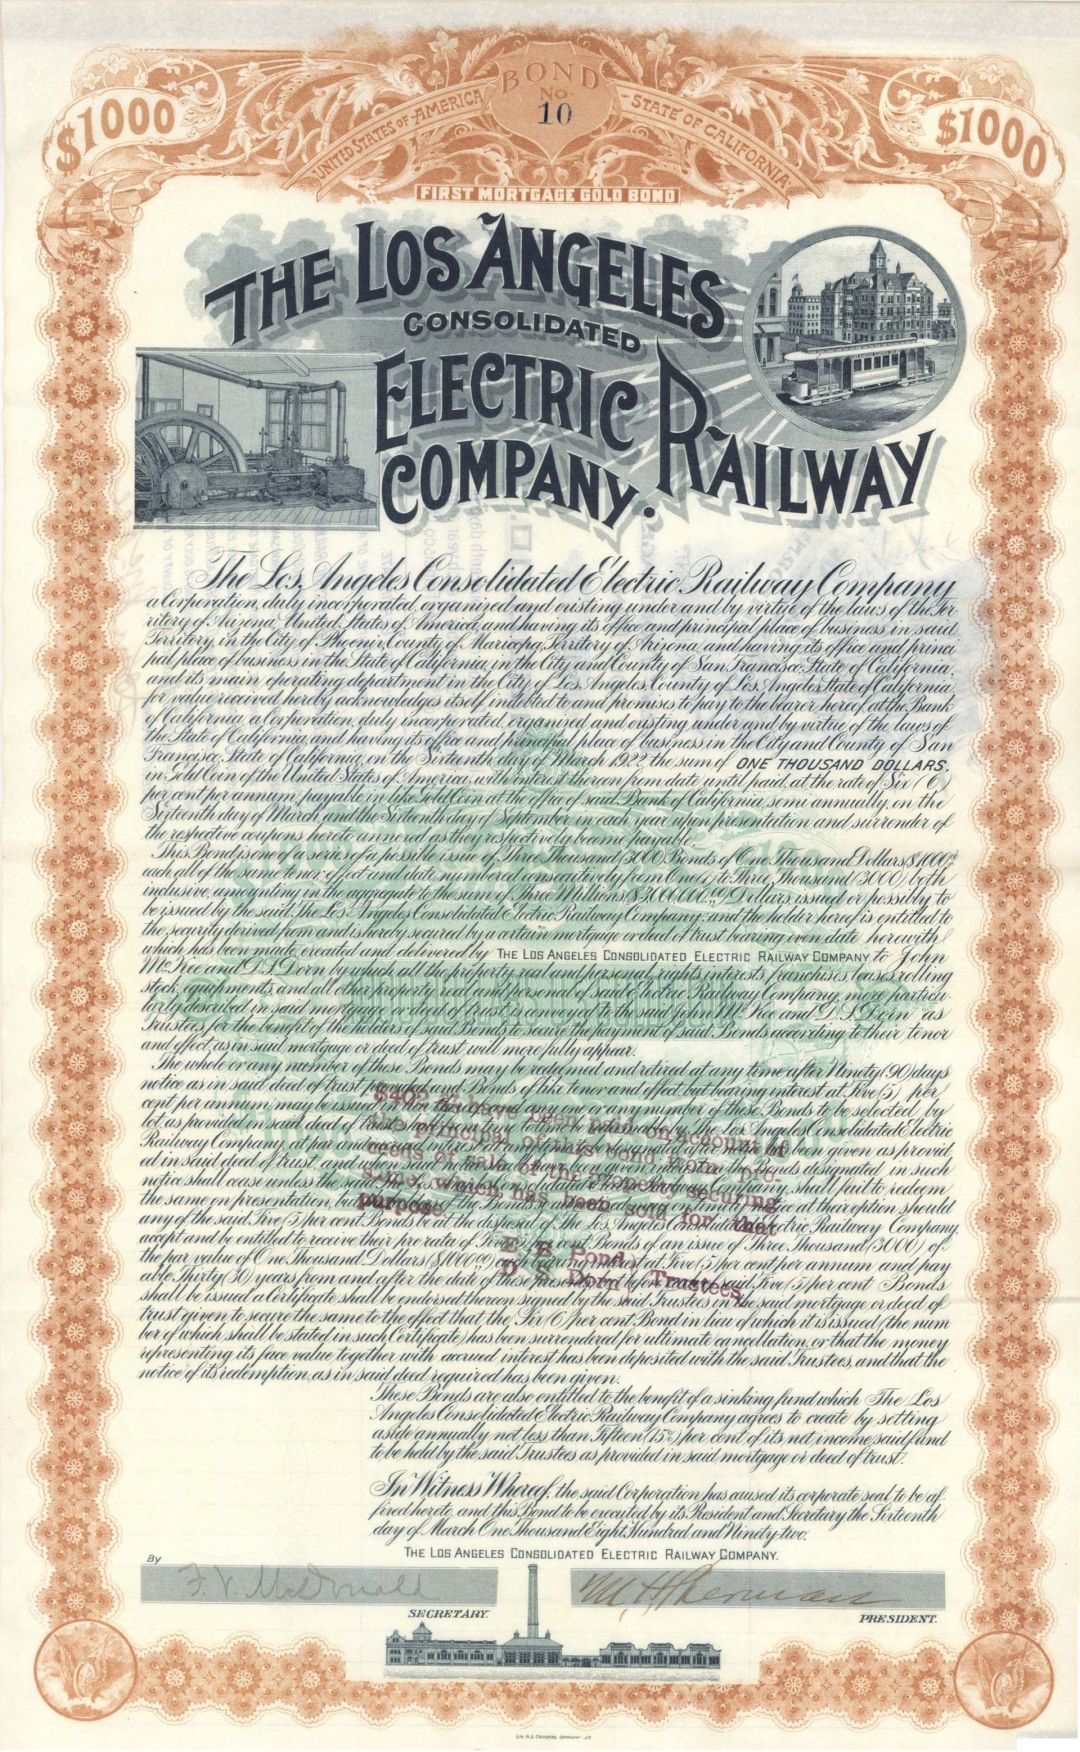 BOND
No.
10
$1000
UNITED STATES OF AMERICA
STATE OF CALIFORNIA
$1000
FIRST MORTGAGE GOLD BOND
THE LOS ANGELES
CONSOLIDATED
ELECTRIC RAILWAY
COMPANY.
The Los Angeles Consolidated Electric Railway Company
a Corporation, duly incorporated, organized and existing under and by virtue of the laws of the Ter
ritory of Arizona, United States of America, and having its office and principal place of business in said
Territory, in the City of Phoenix, County of Maricopa, Territory of Arizona, and having its office and princi
pal place of business in the State of California, in the City and County of San Francisco, State of California,
and its main operating department in the City of Los Angeles, County of Los Angeles, State of California,
for value received hereby acknowledges itself indebted to and promises to pay to the bearer hereof, at the Bank
of California, a Corporation, duly incorporated, organized and existing under and by virtue of the laws of
the State of California, and having its office and principal place of business in the City and County of San
Francisco, State of California, on the Sixteenth day of March 1922, the sum of ONE THOUSAND DOLLARS,
in Gold Coin of the United States of America, with interest thereon from date until paid, at the rate of Six (6)
per cent per annum, payable in like Gold Coin at the office of said Bank of California, semi annually, on the
Sixteenth day of March, and the Sixteenth day of September in each year upon presentation and surrender of
the respective coupons hereto annexed as they respectively become payable.
This Bond is one of a series of a possible issue of Three Thousand (3000) Bonds of One Thousand Dollars ($1000)
each all of the same tenor, effect and date, numbered consecutively from One (1) to Three Thousand (3000) both
inclusive, amounting in the aggregate to the sum of Three Millions ($3,000,000.00) Dollars issued or possibly to
be issued by the said, The Los Angeles Consolidated Electric Railway Company, and the holder hereof is entitled to
the security derived from and is hereby secured by a certain mortgage or deed of trust bearing even date herewith
which has been made, executed and delivered by THE LOS ANGELES CONSOLIDATED ELECTRIC RAILWAY COMPANY to John
McKee and D.S. Dorn by which all the property, real and personal, rights, interests, franchises, leases, rolling
stock, equipments, and all other property real and personal of said Electric Railway Company, more particu
larly described in said mortgage or deed of trust is conveyed to the said John McKee and D.S. Dorn as
Trustees, for the benefit of the holders of said Bonds, to secure the payment of said Bonds according to their tenor
and effect, as in said mortgage or deed of trust will more fully appear.
The whole or any number of these Bonds may be redeemed and retired at any time after Ninety (90) days
notice as in said deed of trust provided, and Bonds of like tenor and effect, but bearing interest at Five (5) per
cent per annum, may be issued in lieu thereof
any one or any number of these Bonds to be selected by
lot, as provided in said deed of trust
by The Los Angeles Consolidated Electric
Railway Company, at par and accrued interest
been given as provid
ed in said deed of trust, and when said notice shall have been given interest on the Bonds designated in such
notice shall cease unless the said
Railway Company, shall fail to redeem
the same on presentation, but
at their option should
any of the said Five (5) per cent Bonds be at the disposal of The Los Angeles Consolidated Electric Railway Company,
accept and be entitled to receive their pro rata of Five (5) per cent Bonds of an issue of Three Thousand (3000) of
the par value of One Thousand Dollars ($1000.00) each bearing interest at Five (5) per cent per annum and pay
able Thirty (30) years from and after the date of these presents, but before the said Five (5) per cent Bonds
shall be issued a Certificate shall be endorsed thereon signed by the said Trustees in the said mortgage or deed of
trust given to secure the same to the effect that the Six (6) per cent Bond in lieu of which it is issued (the num
ber of which shall be stated in such Certificate) has been surrendered for ultimate cancellation, or that the money
representing its face value together with accrued interest has been deposited with the said Trustees, and that the
notice of its redemption, as in said deed required has been given.
$402
have been paid on account of
the principal of this bond from pro-
ceeds of sale of the property securing
same, which has been sold for that
purpose.
E B Pond
D S Dorn } Trustees
These Bonds are also entitled to the benefit of a sinking fund which The Los
Angeles Consolidated Electric Railway Company agrees to create by setting
aside annually not less than Fifteen (15%) per cent of its net income, said fund
to be held by the said Trustees as provided in said mortgage or deed of trust.
In Witness Whereof, the said Corporation has caused its corporate seal to be af
fixed hereto, and this Bond to be executed by its President and Secretary the Sixteenth
day of March One Thousand Eight Hundred and Ninety two.
THE LOS ANGELES CONSOLIDATED ELECTRIC RAILWAY COMPANY.
By
F. V. McDonald
SECRETARY.
M H Sherman
PRESIDENT.